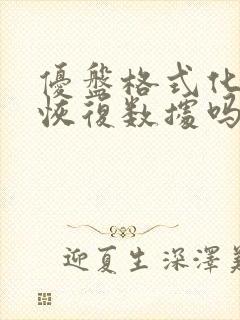 優盤格式化
恢復数據吗
迎夏生深澤